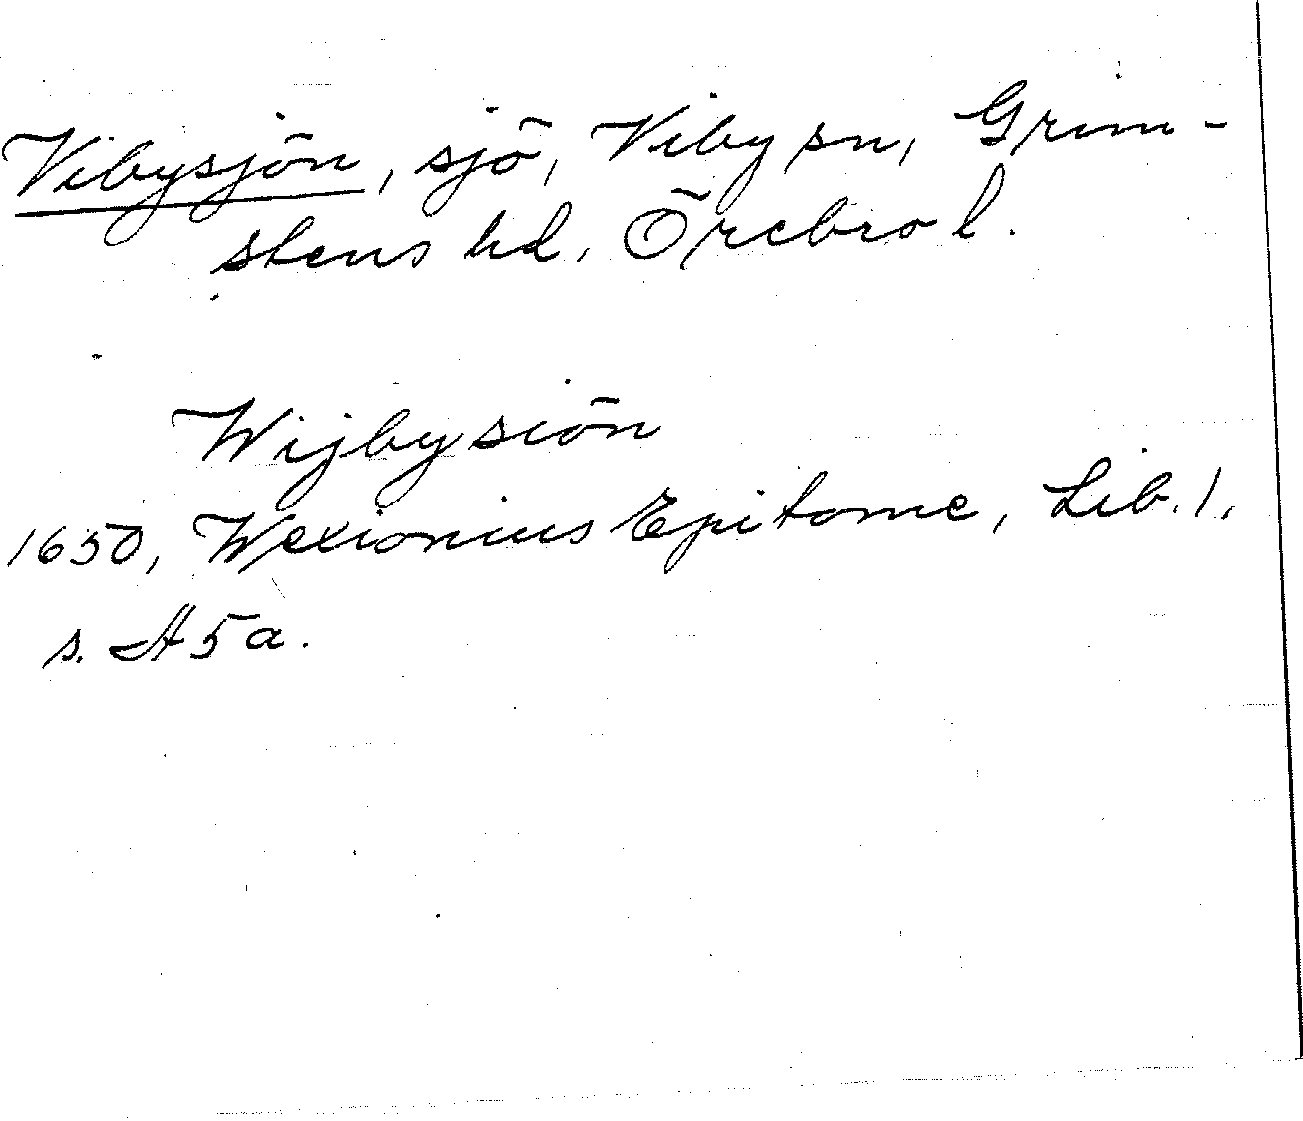 Vibysjön, sjö, Viby sn, Grim-
stens hd, Örebro l.
Wijbysiön
1650, Wexionius Epitome, Lib. 1,
s. A5a.